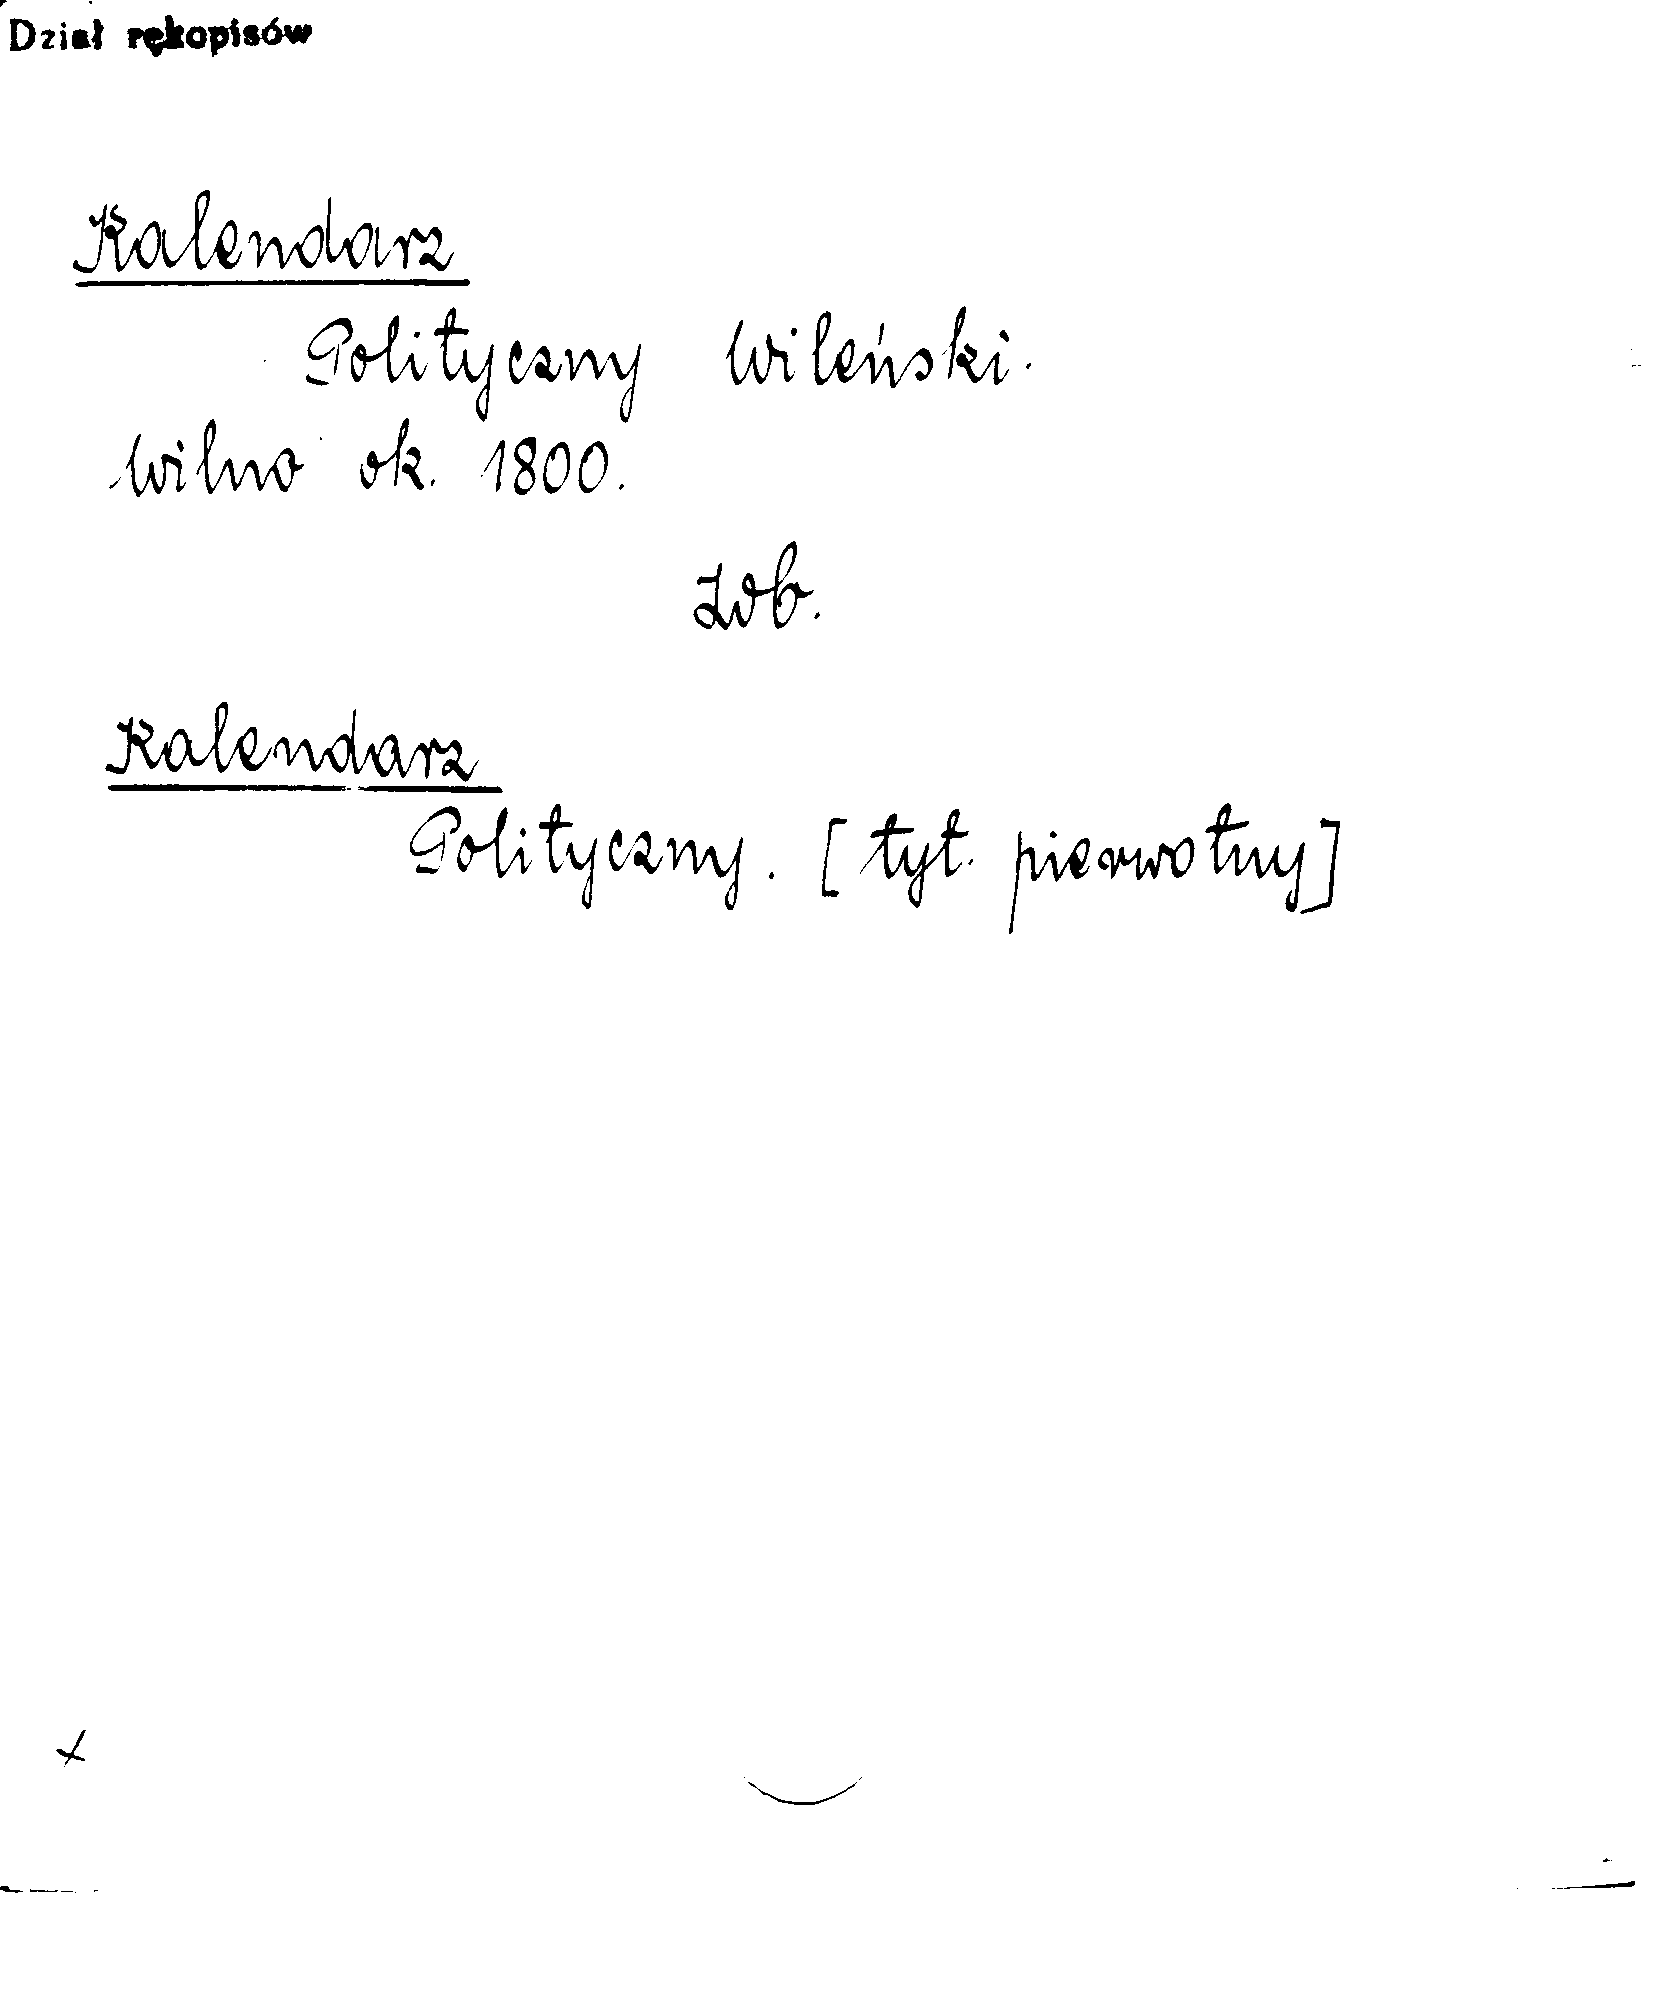 Dział rękopisów
Kalendarz
Polityczny Wileński.
Wilno ok. 1800.
Zob.
Kalendarz
Polityczny. [tyt. pierwotny]